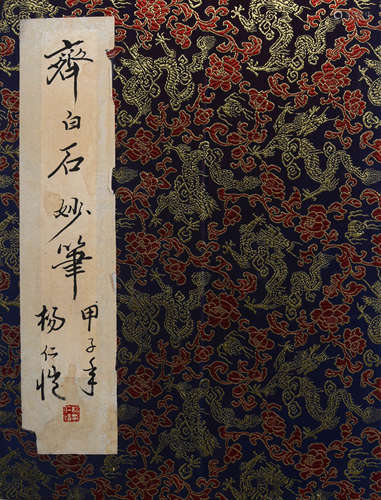 齊白石妙筆
甲子年
楊仁愷